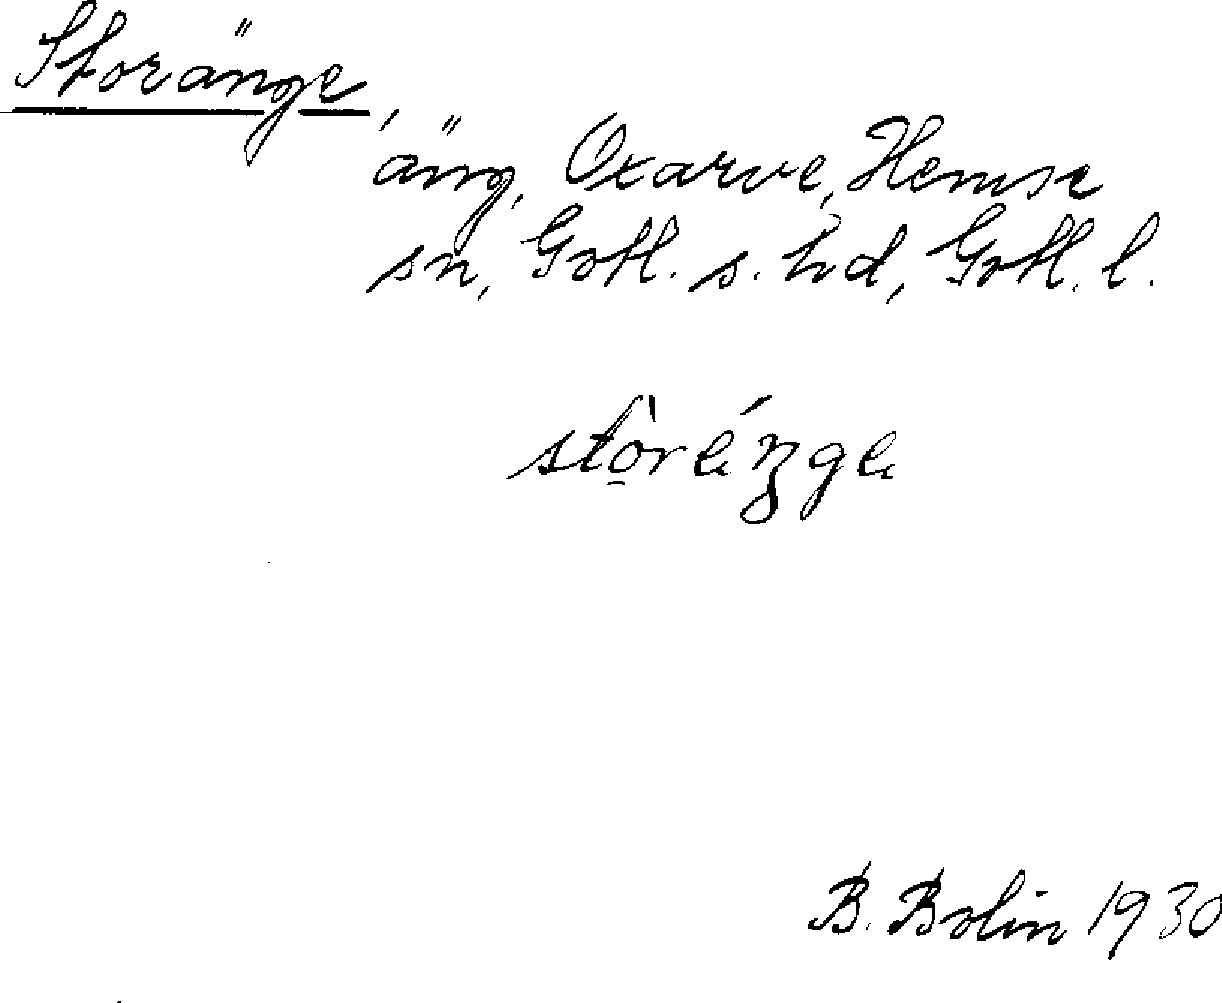 Storänge,
äng, Oxarve, Hemse
sn, Gotl. s. hd, Gotl. l.
stòréŋge
B. Bolin 1930